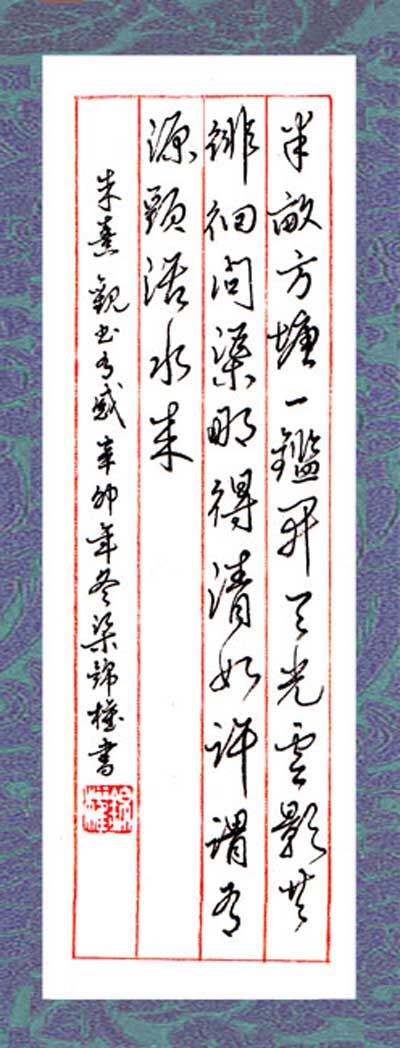 半畝方塘一鑑開天光雲影共
徘徊問渠那得清如許謂有
源頭活水來
朱熹觀書有感辛卯年冬梁錦權書